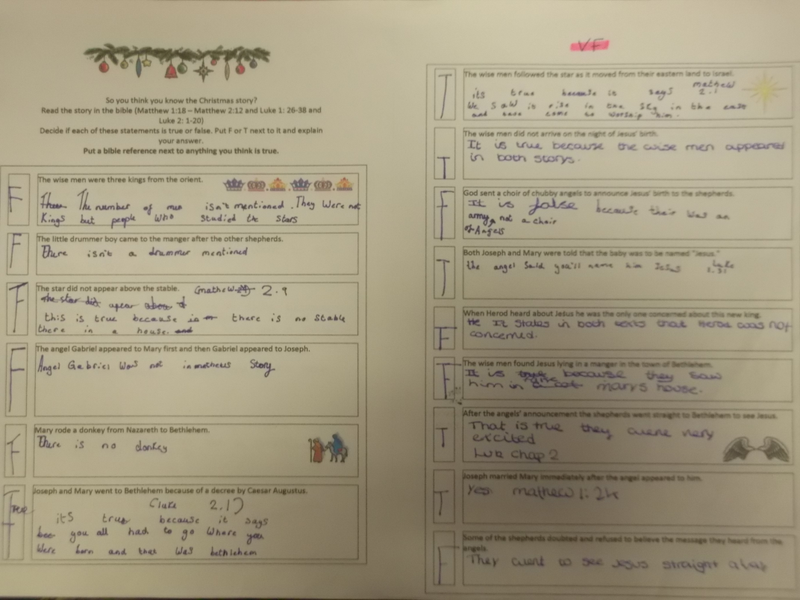 So you think you know the Christmas story?
Read the story in the bible (Matthew 1:18 – Matthew 2:12 and Luke 1: 26-38 and
Luke 2: 1-20)
Decide if each of these statements is true or false. Put F or T next to it and explain
your answer.
Put a bible reference next to anything you think is true.
F
The wise men were three kings from the orient.
The number of men isn't mentioned. They were not
Kings but people who studied the stars
F
The little drummer boy came to the manger after the other shepherds.
There isn't a drummer mentioned
The star did not appear above the stable.
2.9
this is true because there is no stable
there in a house
F
The angel Gabriel appeared to Mary first and then Gabriel appeared to Joseph.
Angel Gabriel was not in Story
F
Mary rode a donkey from Nazareth to Bethlehem.
There is no donkey
True
Joseph and Mary went to Bethlehem because of a decree by Caesar Augustus.
(Luke 2.1)
it's true because it says
you all had to go where you
were born and that was bethlehem
VF
T
The wise men followed the star as it moved from their eastern land to Israel.
mathew
2.1
its true because it says
we saw it rise in the in the east
and have come to worship him.
T
The wise men did not arrive on the night of Jesus' birth.
It is true because the wise men appeared
in both storys.
F
God sent a choir of chubby angels to announce Jesus' birth to the shepherds.
It is false because their was an
army not a choir
of Angels
T
Both Joseph and Mary were told that the baby was to be named "Jesus."
the angel said you'll name him Jesus Luke
1.31
F
When Herod heard about Jesus he was the only one concerned about this new king.
It states in both texts that Herod was not
concerned.
F
The wise men found Jesus lying in a manger in the town of Bethlehem.
It is because they saw
him in marys house.
T
After the angels' announcement the shepherds went straight to Bethlehem to see Jesus.
That is true they were very
excited
Luke Chap 2
T
Joseph married Mary immediately after the angel appeared to him.
Yes. mathew 1: 24
F
Some of the shepherds doubted and refused to believe the message they heard from the
angels.
They went to see Jesus straight away